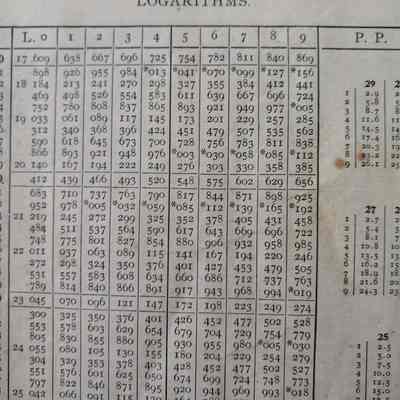 LOGARITHMS.
L. 0 1 2 3 4 5 6 7 8 9 P. P.
17 609 638 667 696 725 754 782 811 840 869
898 926 955 984 *013 *041 *070 *099 *127 *156
18 184 213 241 270 298 327 355 384 412 441
469 498 526 554 583 611 639 667 696 724
752 780 808 837 865 893 921 949 977 *005
19 033 061 089 117 145 173 201 229 257 285
312 340 368 396 424 451 479 507 535 562
590 618 645 673 700 728 756 783 811 838
866 893 921 948 976 *003 *030 *058 *085 *112
20 140 167 194 222 249 276 303 330 358 385
412 439 466 493 520 548 575 602 629 656
683 710 737 763 790 817 844 871 898 925
952 978 *005 *032 *059 *085 *112 *139 *165 *192
21 219 245 272 299 325 352 378 405 431 458
484 511 537 564 590 617 643 669 696 722
748 775 801 827 854 880 906 932 958 985
22 011 037 063 089 115 141 167 194 220 246
272 298 324 350 376 401 427 453 479 505
531 557 583 608 634 660 686 712 737 763
789 814 840 866 891 917 943 968 994 *019
23 045 070 096 121 147 172 198 223 249 274
300 325 350 376 401 426 452 477 502 528
553 578 603 629 654 679 704 729 754 779
805 830 855 880 905 930 955 980 *005 *030
24 055 080 105 130 155 180 204 229 254 279
304 329 353 378 403 428 452 477 502 527
551 576 601 625 650 674 699 724 748 773
797 822 846 871 895 920 944 969 993 *018
25 042 066 091 115 139
29
1 2.9
2 5.8
3
4
5 14.5
6 17.4
7 20.3
8 23.2
9 26.1
27
1 2.7
2 5.4
3 8.1
4 10.8
5 13.5
6 16.2
7 18.9
8 21.6
9 24.3
25
1 2.5
2 5.0
3 7.5
4 10.0
5 12.5
6 15.0